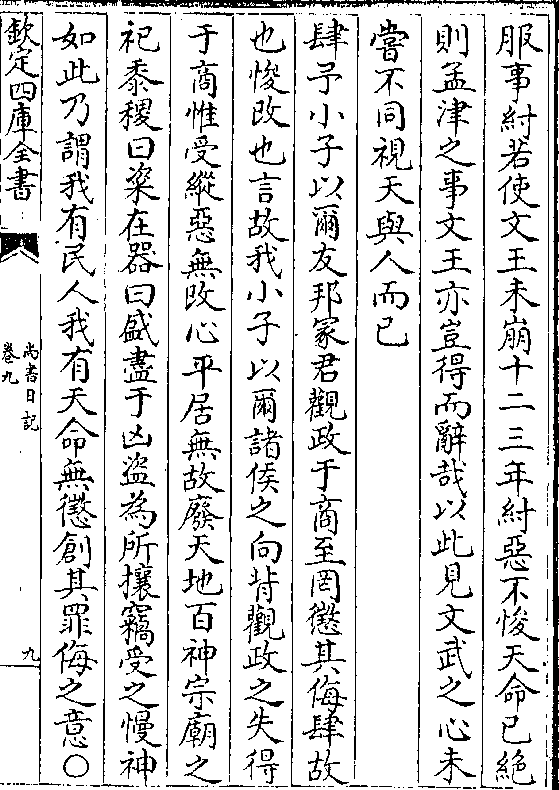 服事紂若使文王未崩十二三年紂惡不悛天命已絶
則孟津之事文王亦豈得而辭哉以此見文武之心未
嘗不同視天與人而已
肆予小子以爾友邦冢君觀政于商至罔懲其侮肆故
也悛改也言故我小子以爾諸侯之向背觀政之失得
于商惟受縱惡無改心平居無故廢天地百神宗廟之
祀黍稷曰粢在器曰盛盡于凶盜為所攘竊受之慢神
如此乃謂我有民人我有天命無懲創其罪侮之意○
欽定四庫全書
尚書日記
卷九
九